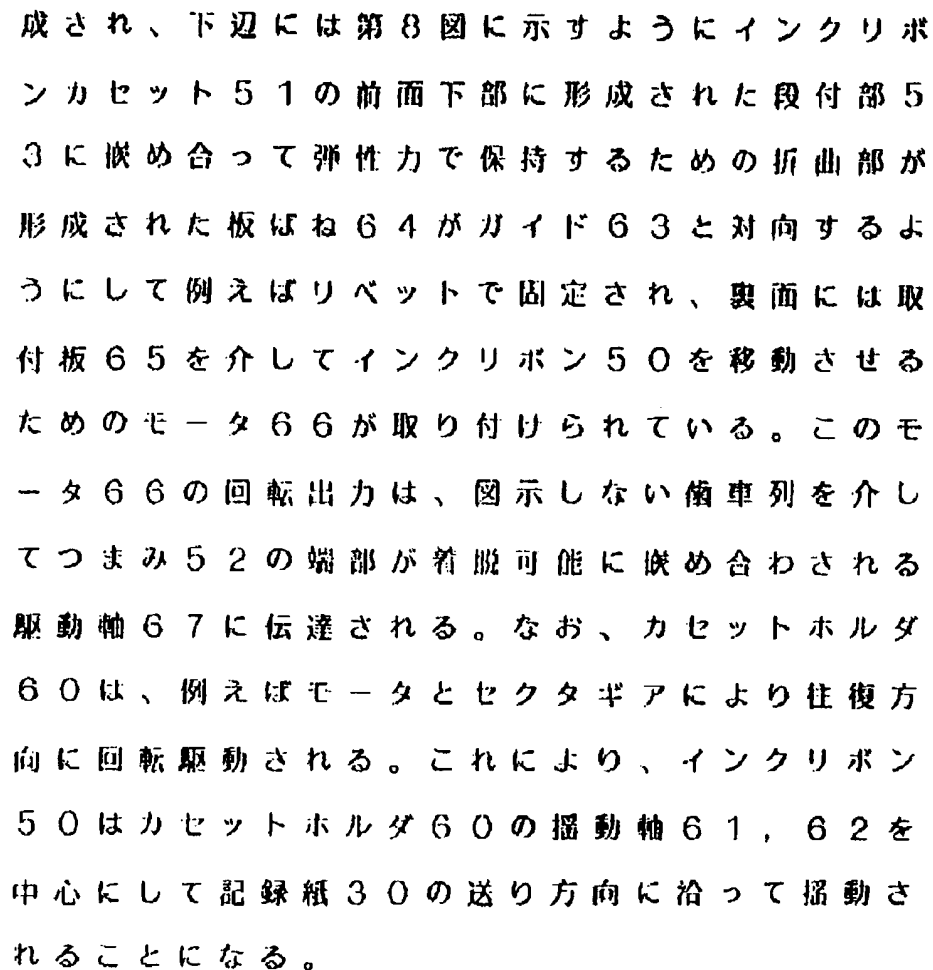 成され、下辺には第8図に示すようにインクリボ
ンカセット51の前面下部に形成された段付部5
3に嵌め合って弾性力で保持するための折曲部が
形成された板ばね64がガイド63と対向するよ
うにして例えばリベットで固定され、裏面には取
付板65を介してインクリボン50を移動させる
ためのモータ66が取り付けられている。このモ
ータ66の回転出力は、図示しない歯車列を介し
てつまみ52の端部が着脱可能に嵌め合わされる
駆動軸67に伝達される。なお、カセットホルダ
60は、例えばモータとセクタギアにより往復方
向に回転駆動される。これにより、インクリボン
50はカセットホルダ60の揺動軸61,62を
中心にして記録紙30の送り方向に沿って揺動さ
れることになる。